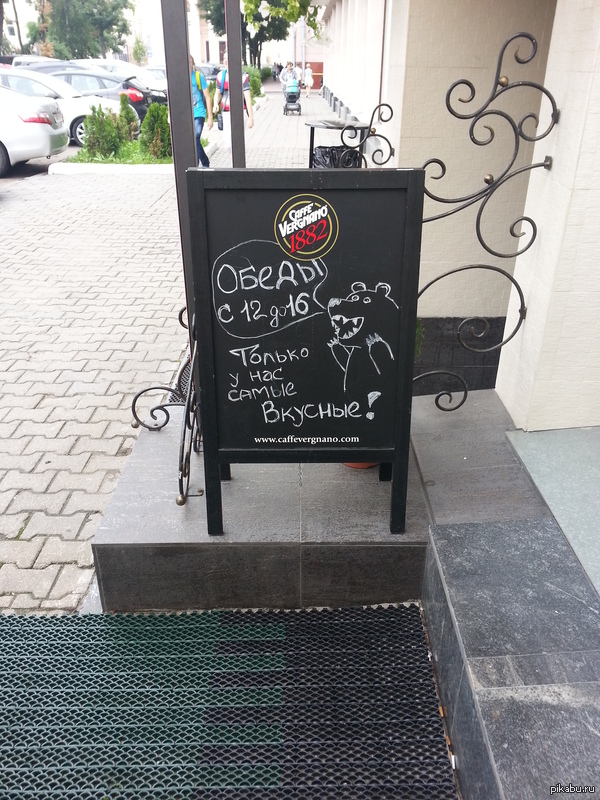 CAFFÈ
VERGNANO
1882
ОБЕДЫ
С 12 до 16
Только
у нас
самые
Вкусные!
www.caffevergnano.com
pikabu.ru